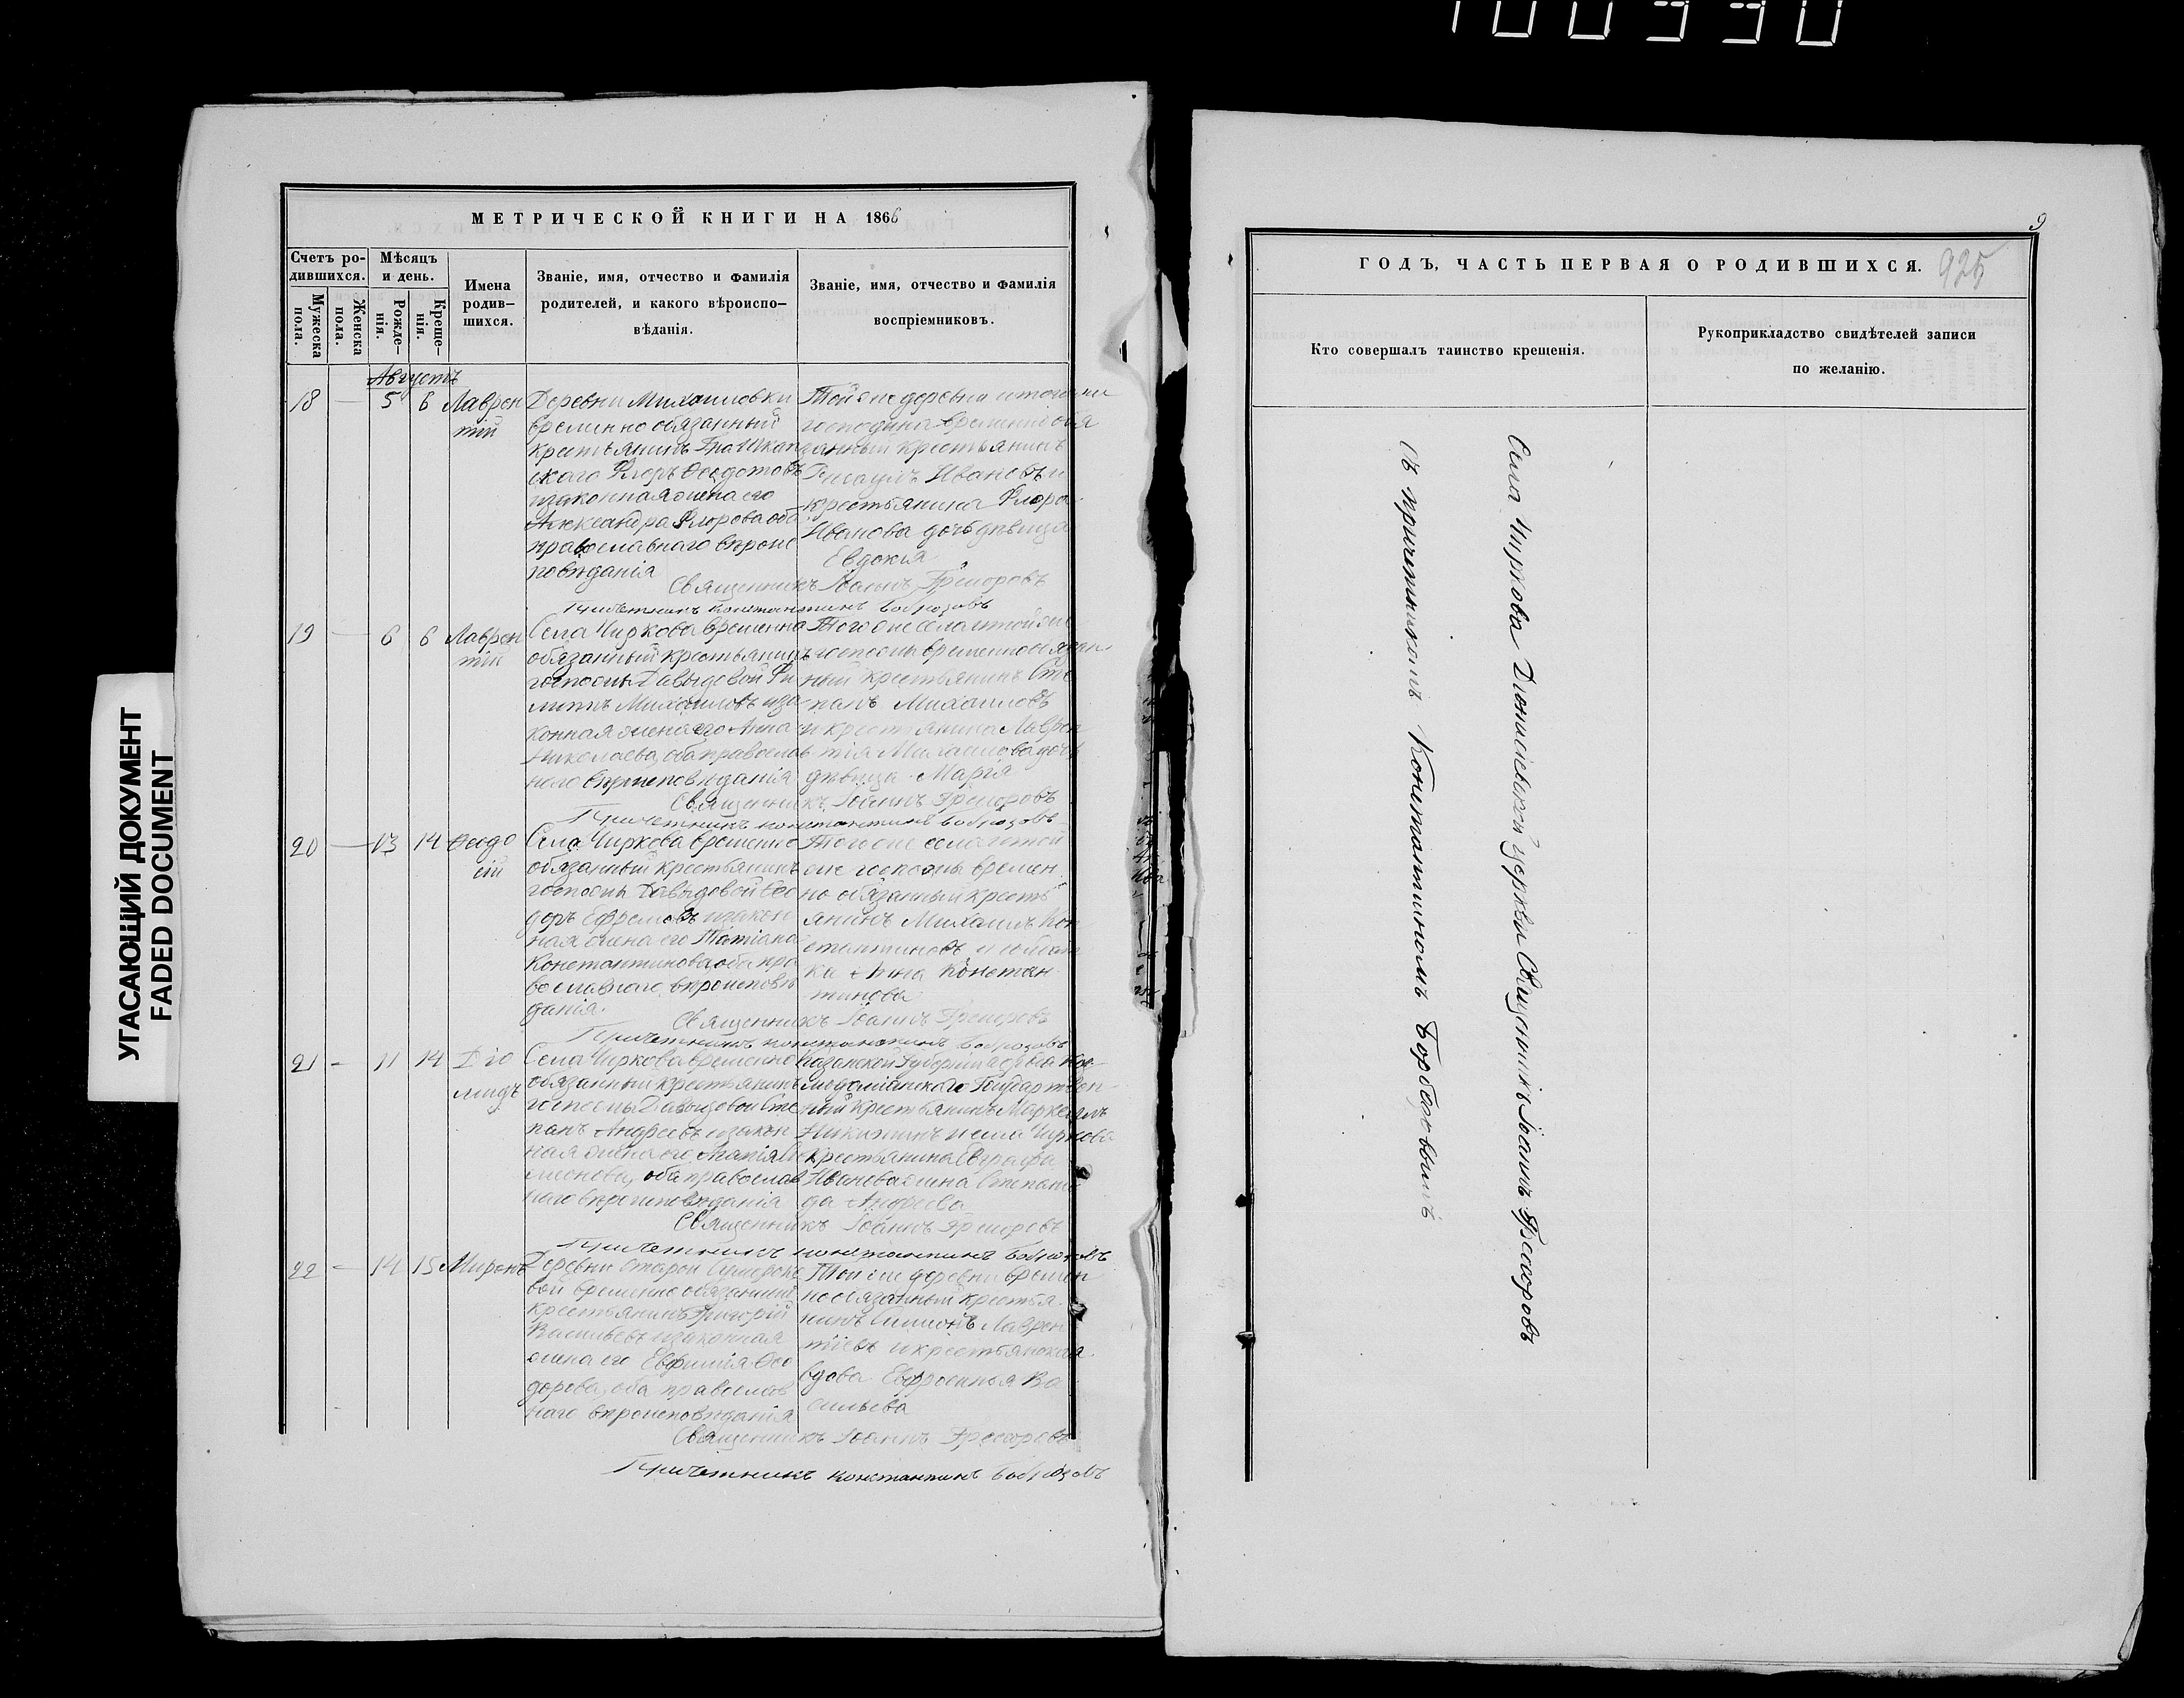 100990
УГАСАЮЩИЙ ДОКУМЕНТ
FADED DOCUMENT
МЕТРИЧЕСКОЙ КНИГИ НА 1866
Счетъ ро-
дившихся.
Мужеска
пола.
Женска
пола.
Мѣсяцъ
и день.
Рожде-
нія.
Креще-
нія.
Имена
родив-
шихся.
Званіе, имя, отчество и фамилія
родителей, и какого вѣроиспо-
вѣданія.
Званіе, имя, отчество и фамилія
воспріемниковъ.
Августъ
18 — 5 6 Лаврен
тій
Деревни Михаиловки
временно обязанный
крестьянинъ
скаго Флоръ Ѳедотовъ
и законная жена его
Александра Флорова оба
православнаго вѣроис
повѣданія
Той же деревни и того же
господина временно обя
занный крестьянинъ
Ивановъ и
крестьянина Флора
Иванова дочь дѣвица
Евдокія
Священникъ Іоаннъ
Причетникъ Константинъ
19 — 6 6 Лаврен
тій
Села Чиркова временно
обязанный крестьянинъ
госпожи Давыдовой Фи
липпъ Михаиловъ и за
конная жена его Анна
Николаева, оба православ
наго вѣроисповѣданія
Того же села и той же
госпожи временно обязан
ный крестьянинъ Сте
панъ Михаиловъ
и крестьянина Лаврен
тія Михаилова дочь
дѣвица Марія
Священникъ Іоаннъ
Причетникъ Константинъ
20 — 13 14 Ѳеодо
сій
Села Чиркова временно
обязанный крестьянинъ
госпожи Давыдовой Ѳео
доръ Ефремовъ и закон
ная жена его Татіана
Константинова, оба пра
вославнаго вѣроисповѣ
данія.
Того же села и той
же госпожи времен
но обязанный кресть
янинъ Михаилъ Кон
стантиновъ и
Анна Констан
тинова
Священникъ Іоаннъ
Причетникъ Константинъ
21 — 11 14 Діо
мидъ
Села Чиркова временно
обязанный крестьянинъ
госпожи Давыдовой Сте
панъ Андреевъ и закон
ная жена его
оба православ
наго вѣроисповѣданія
Казанской Губерніи
Государствен
ный крестьянинъ
Никитинъ и села Чиркова
крестьянина Евграфа
Иванова жена Степани
да Андреева
Священникъ Іоаннъ
Причетникъ Константинъ
22 — 14 15 Миронъ
Деревни Старой
вой временно обязанный
крестьянинъ Григорій
Васильевъ и законная
жена его Евфимія Ѳео
дорова, оба православ
наго вѣроисповѣданія
Той же деревни времен
но обязанный крестья
нинъ Симонъ Лаврен
тіевъ и крестьянская
вдова Евфросинья Ва
сильева
Священникъ Іоаннъ
Причетникъ Константинъ
9
ГОДЪ, ЧАСТЬ ПЕРВАЯ О РОДИВШИХСЯ. 925
Кто совершалъ таинство крещенія.
Рукоприкладство свидѣтелей записи
по желанію.
Села Чиркова церкви Священникъ Іоаннъ
Съ причетникомъ Константиномъ